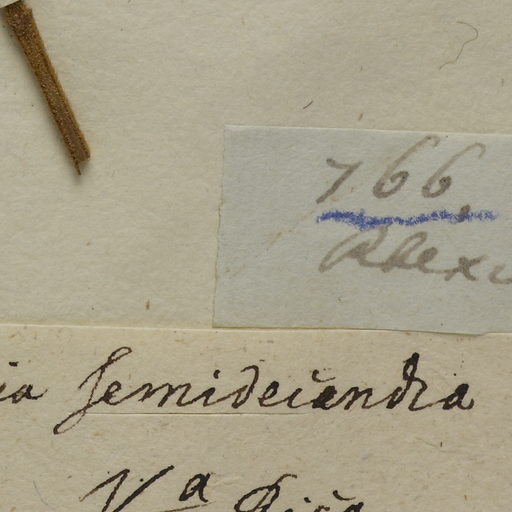 766.
Rhexi
ia semidecandra
V^a Rica